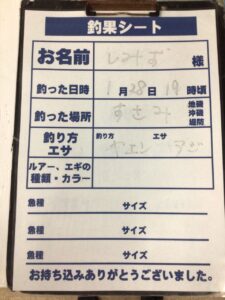 釣果シート
お名前 しみず 様
釣った日時 1月28日19時頃
釣った場所 すさみ 地磯 沖磯 堤防
釣り方 エサ 釣り方 ヤエン エサ アジ
ルアー、エギの種類・カラー
魚種 サイズ
魚種 サイズ
魚種 サイズ
お持ち込みありがとうございました。